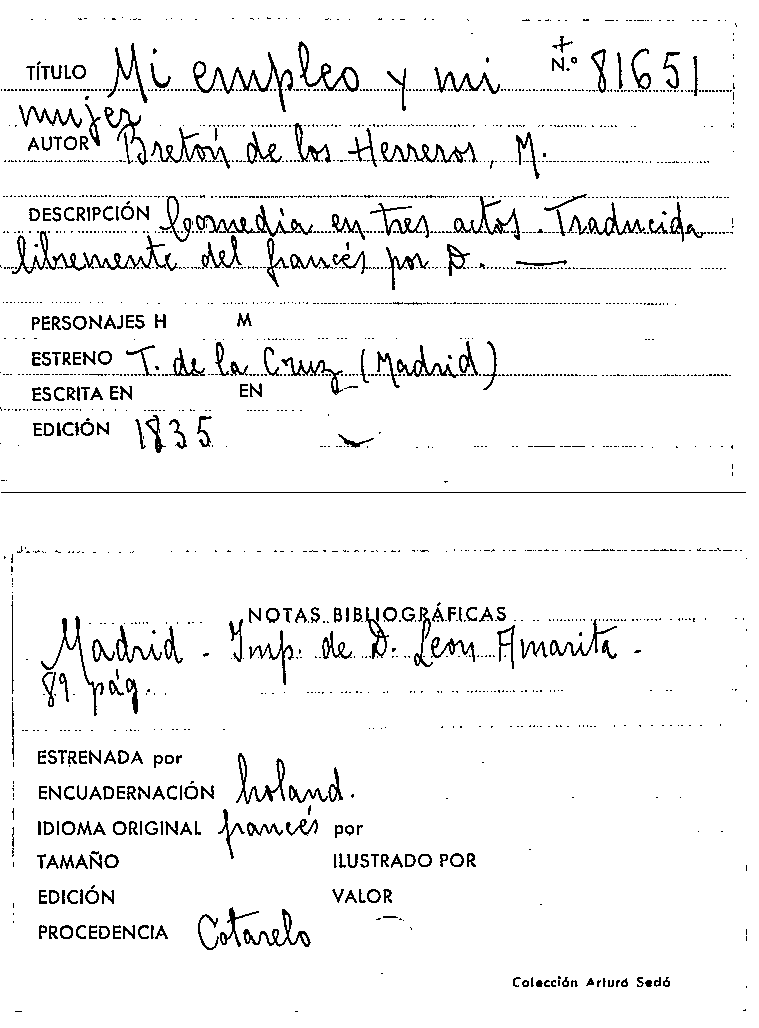 TÍTULO Mi empleo y mi + N.º 81651
mujer
AUTOR Bretón de los Herreros, M.
DESCRIPCIÓN Comedia en tres actos. Traducida
libremente del francés por D. —
PERSONAJES H M
ESTRENO T. de la Cruz (Madrid)
ESCRITA EN EN
EDICIÓN 1835
NOTAS BIBLIOGRÁFICAS
Madrid - Imp. de D. Leon Amarita -
89 pág.
ESTRENADA por
ENCUADERNACIÓN holand.
IDIOMA ORIGINAL francés por
TAMAÑO ILUSTRADO POR
EDICIÓN VALOR —
PROCEDENCIA Cotarelo
Colección Arturo Sedó